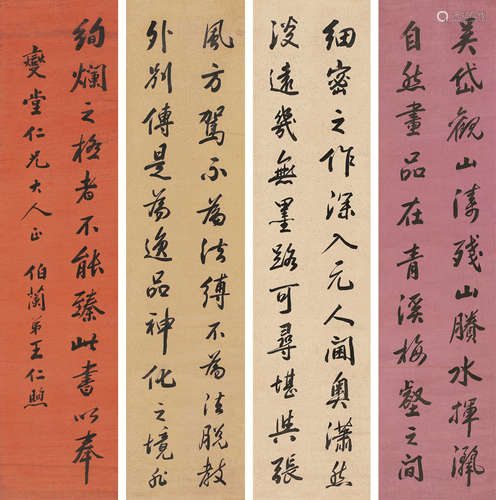 美岱觀山濤殘山賸水揮灑
自然畫品在青溪梅壑之間
細密之作深入元人閫奧瀟然
淡遠幾無墨路可尋堪與張
風方駕不為法縛不為法脫教
外別傳是為逸品神化之境非
絢爛之極者不能臻此書以奉
燮堂仁兄大人正 伯蘭弟王仁煦